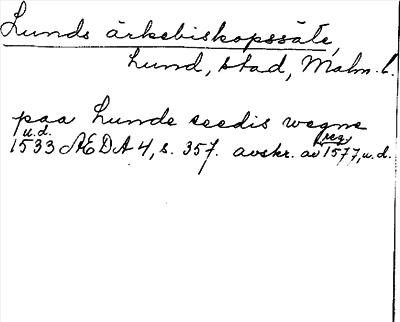 Lunds ärkebiskopssäte,
Lund, stad, Malm. l.
paa Lunde seedis wegne
u.d. reg.
1533 ÆDA 4, s. 357. avskr. av 1577, u.d.